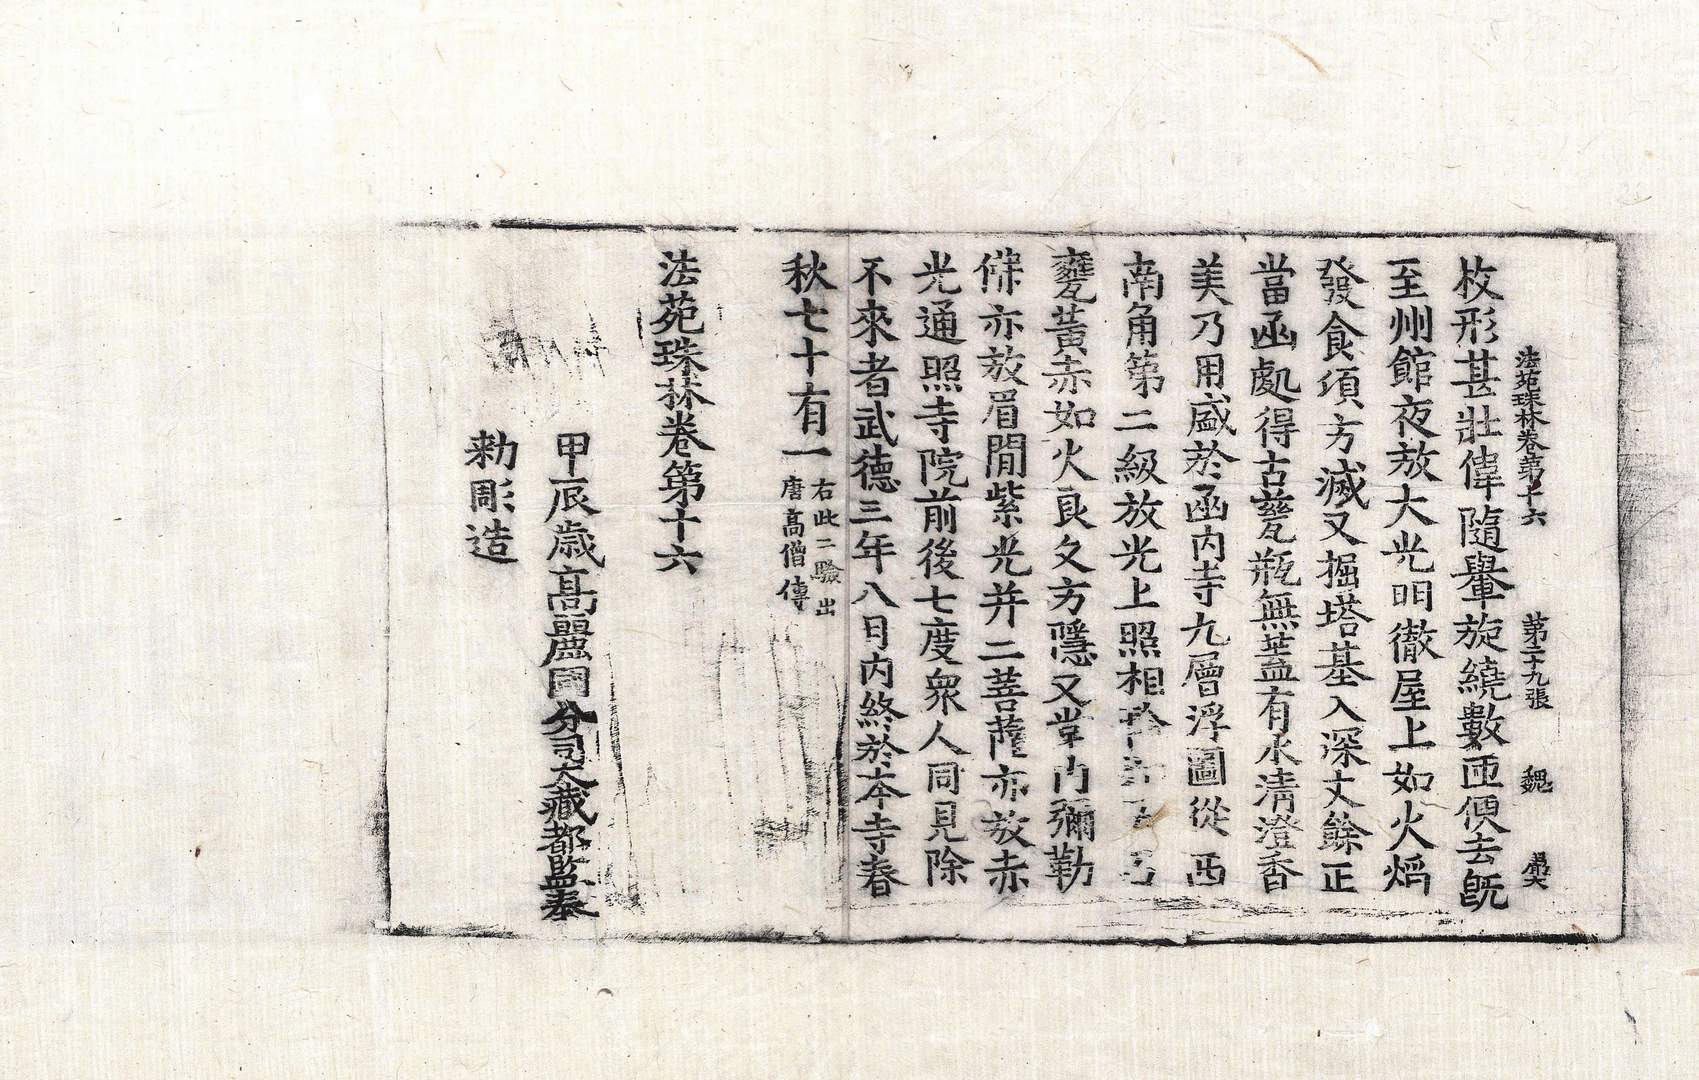 法苑珠林卷第十六 第二十九張 魏
枚形甚壯偉隨轝旋繞數匝便去旣
至州館夜放大光明徹屋上如火焰
發食須方滅又掘塔基入深丈餘正
當函處得古甆瓶無蓋有水清澄香
美乃用盛於函內寺九層浮圖從西
南角第二級放光上照相
甕黃赤如火良久方隱又堂內彌勒
像亦放眉間紫光并二菩薩亦放赤
光通照寺院前後七度衆人同見除
不來者武德三年八月內終於本寺春
秋七十有一 右此二驗出
唐高僧傳
法苑珠林卷第十六
甲辰歲高麗國分司大藏都監奉
勅彫造